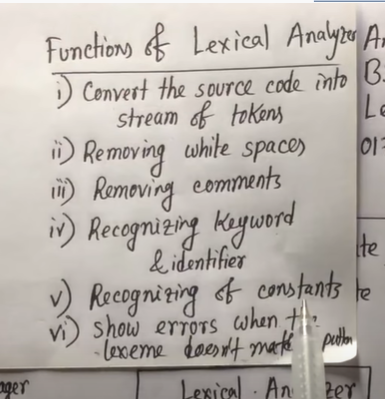 Functions of Lexical Analyzer
i) Convert the source code into
stream of tokens
ii) Removing white spaces
iii) Removing comments
iv) Recognizing keyword
& identifier
v) Recognizing of constants
vi) show errors when
lexeme doesn't
Lexical